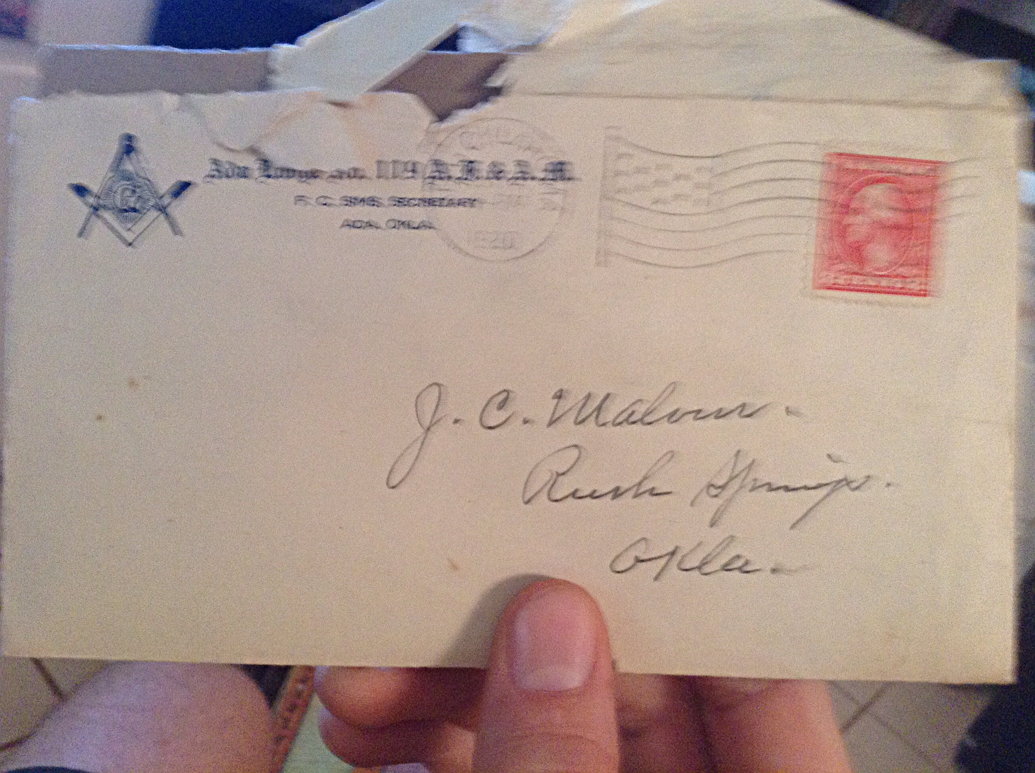 Ada Lodge No. 119 A.F. & A.M.
F. C. SIMS, SECRETARY
ADA, OKLA.
1920
CENTS 2
J. C. Malour.
Rush Springs.
Okla.